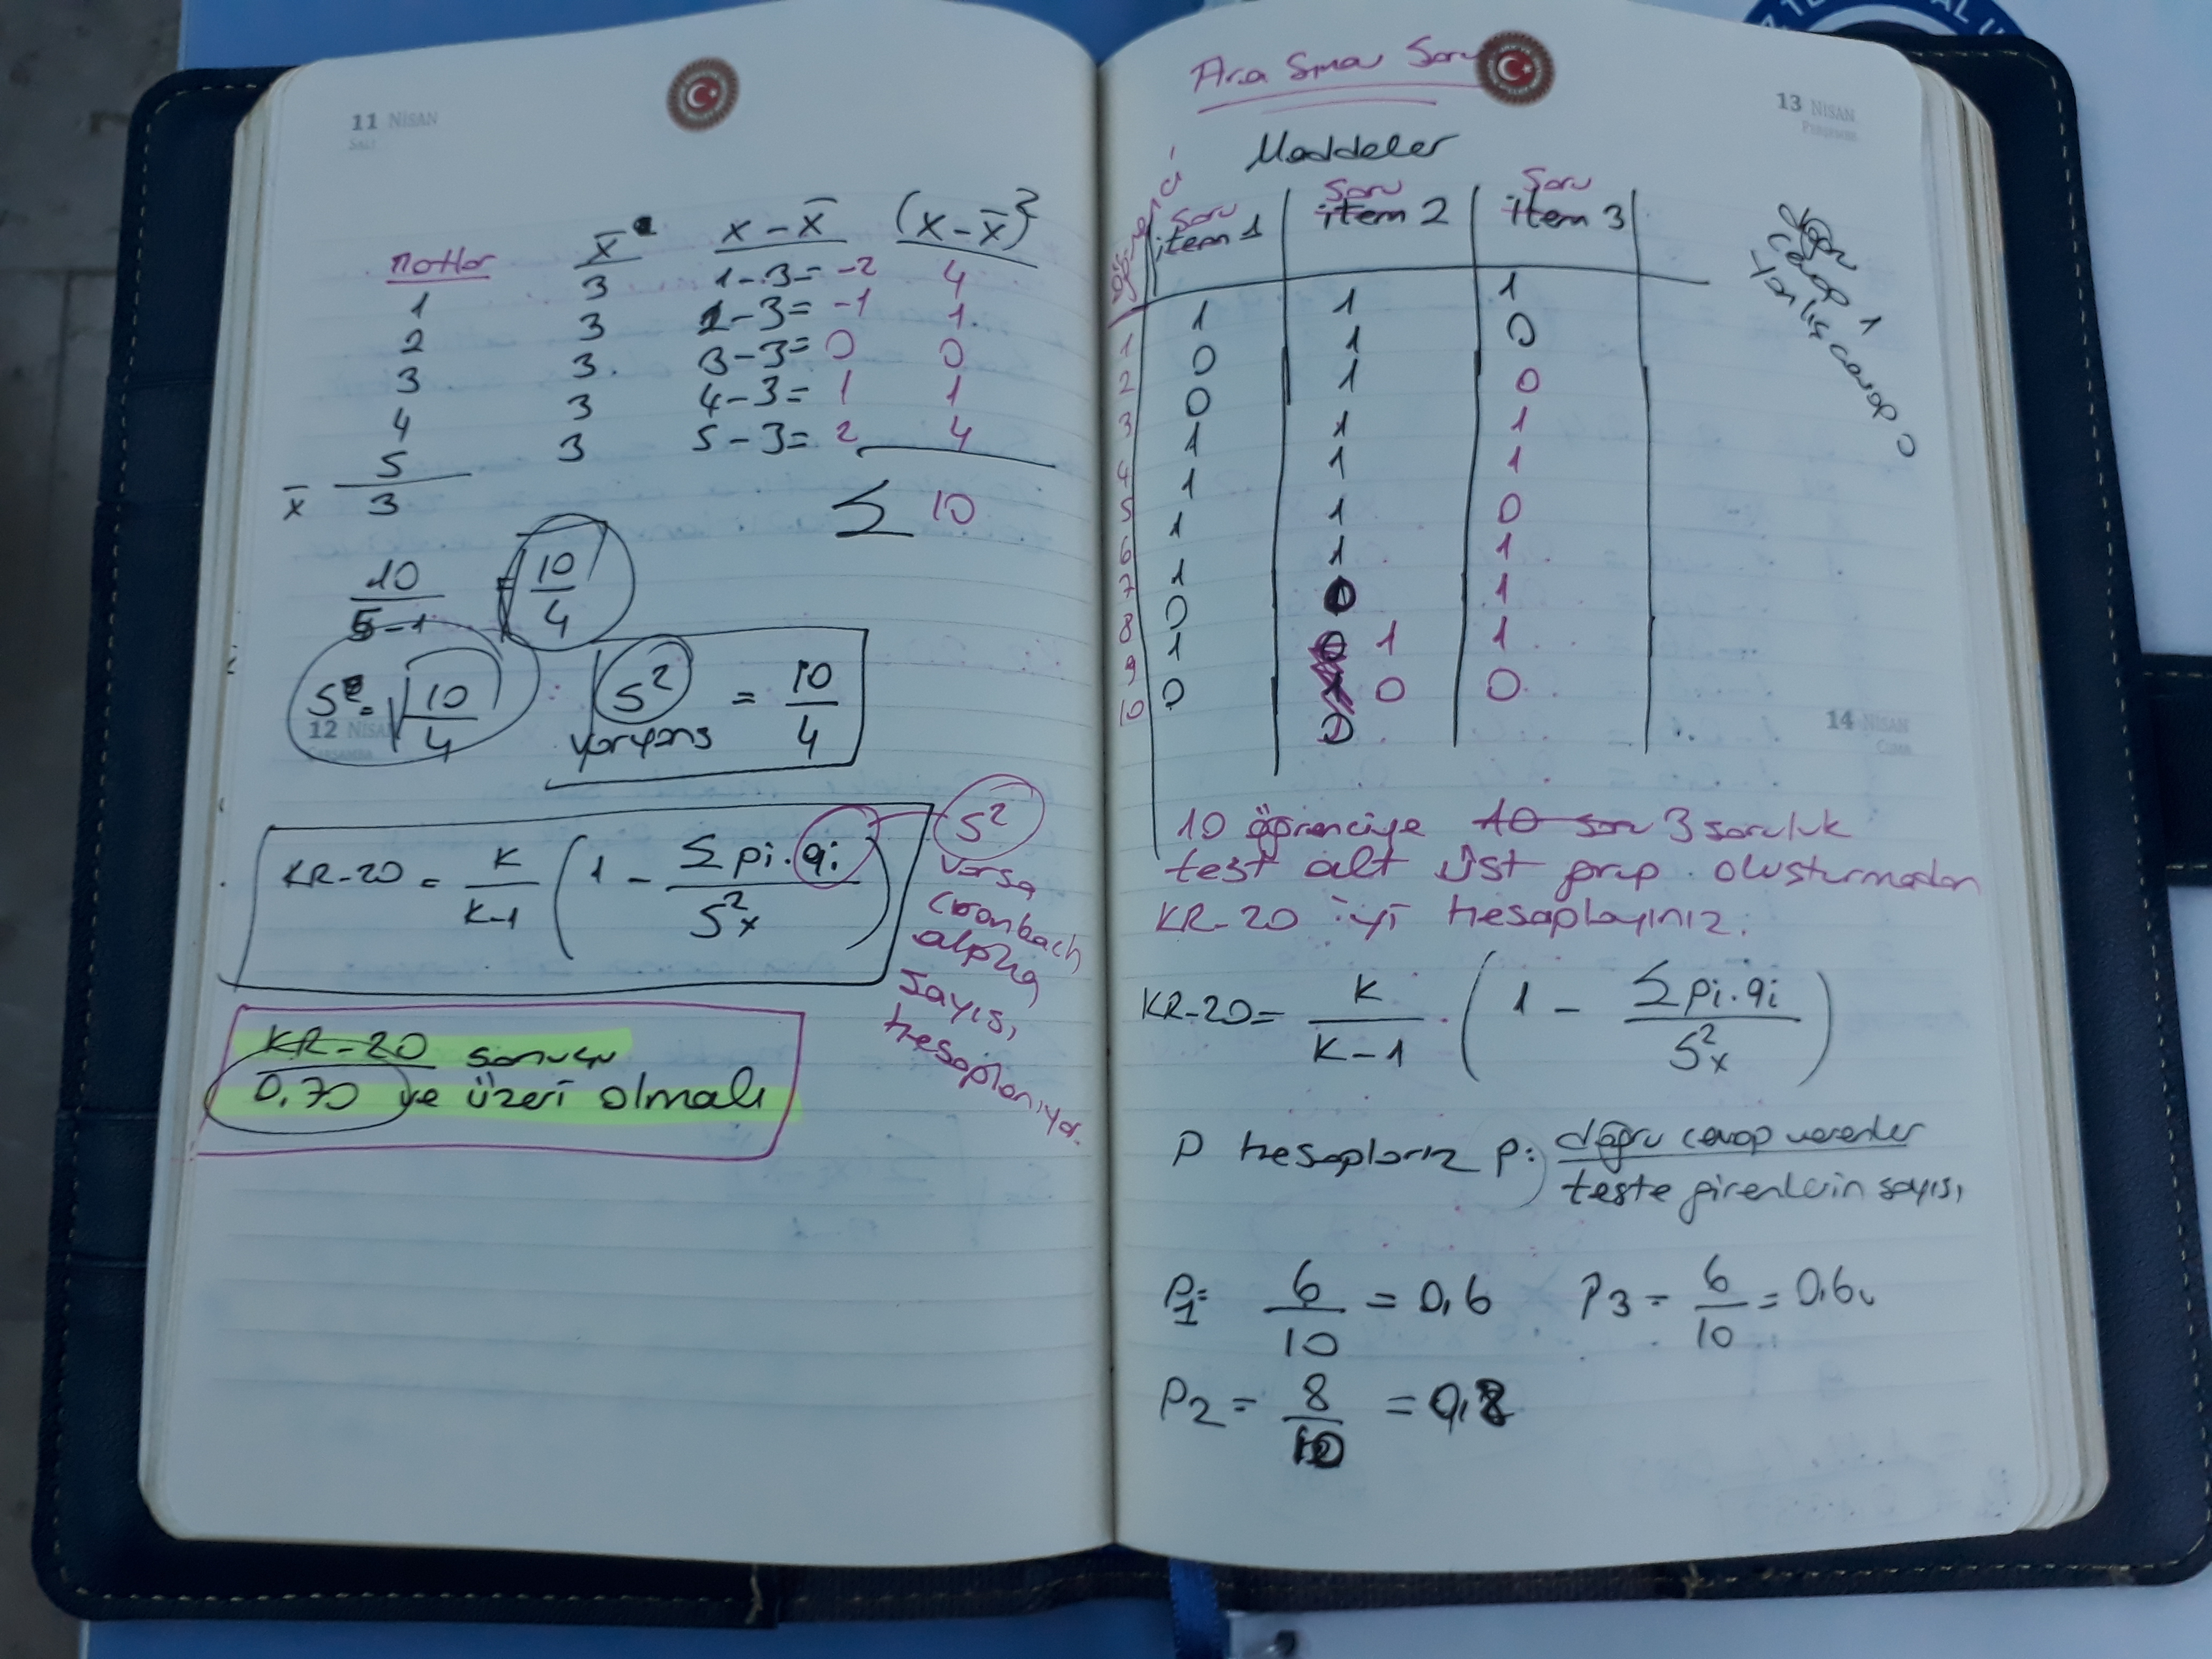 11 NİSAN
SALI
notlar x̄ x - x̄ (x - x̄)²
1 3 1 - 3 = -2 4
2 3 2 - 3 = -1 1
3 3 3 - 3 = 0 0
4 3 4 - 3 = 1 1
5 3 5 - 3 = 2 4
x̄ 3 Σ 10
10/5-1 = √10/4
S = √10/4 S² = 10/4
varyans
12 NİSAN
ÇARŞAMBA
KR-20 = K/K-1 (1 - Σpi.qi/S²x)
S²
varsa
cronbach
alpha
sayısı
hesaplanıyor.
KR-20 sonucu
0,70 ve üzeri olmalı
Ara Sınav Soru
13 NİSAN
PERŞEMBE
Maddeler
öğrenci
soru soru soru
item 1 item 2 item 3
doğru
cevap 1
yanlış cevap 0
1 1 1 1
2 0 1 0
3 0 1 0
4 1 1 1
5 1 1 1
6 1 1 0
7 1 1 1
8 0 0 1
9 1 0 1 1
10 0 1 0 0
0
14 NİSAN
CUMA
10 öğrenciye 10 soru 3 soruluk
test alt üst grup oluşturmadan
KR-20 'yi hesaplayınız.
KR-20 = K/K-1 . (1 - Σpi.qi/S²x)
P hesaplarız p: doğru cevap verenler/teste girenlerin sayısı
P1 = 6/10 = 0,6 P3 = 6/10 = 0,6
P2 = 8/10 = 0,8